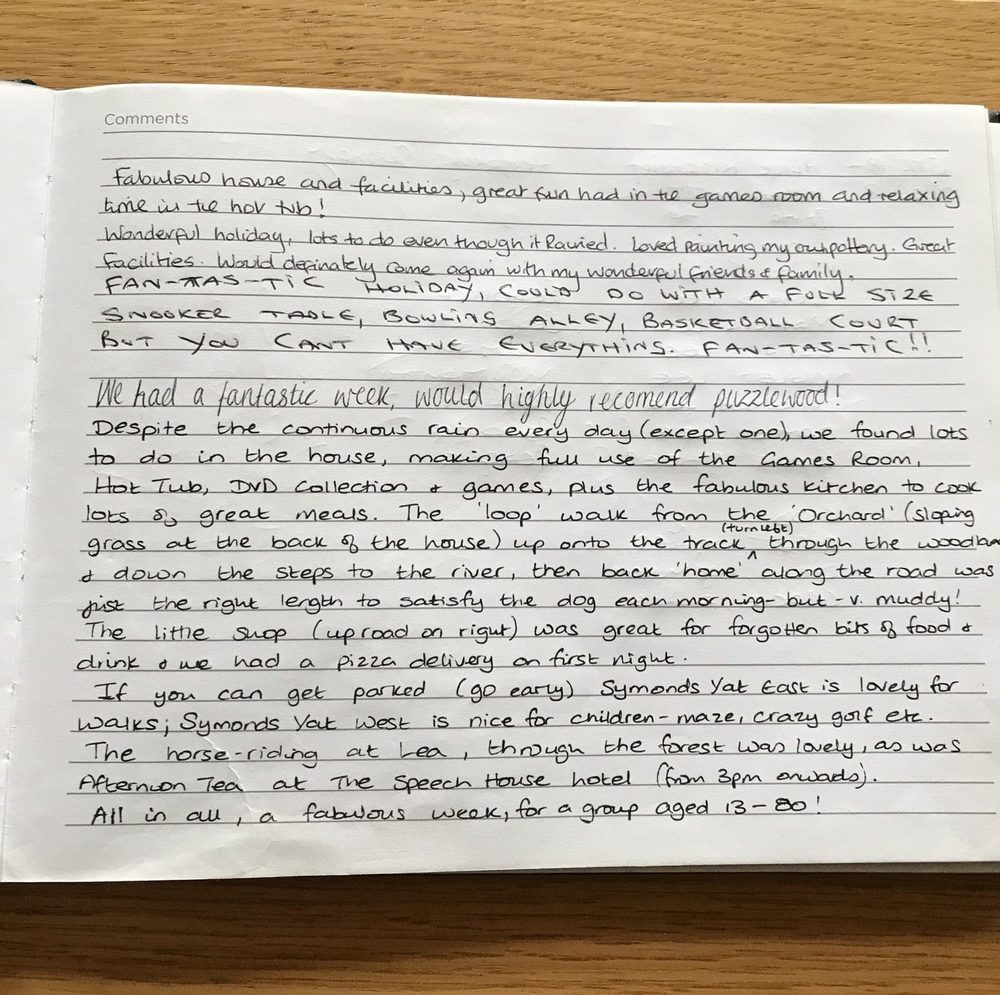 Comments
Fabulous house and facilities, great fun had in the games room and relaxing
time in the hot tub!
Wonderful holiday, lots to do even though it Rained. Loved painting my own pottery. Great
facilities. Would definately come again with my wonderful friends & family.
FAN-TAS-TIC HOLIDAY, COULD DO WITH A FULL SIZE
SNOOKER TABLE, BOWLING ALLEY, BASKETBALL COURT
BUT YOU CANT HAVE EVERYTHING. FAN-TAS-TIC!!
We had a fantastic week, would highly recomend puzzlewood!
Despite the continuous rain every day (except one), we found lots
to do in the house, making full use of the Games Room,
Hot Tub, DVD Collection & games, plus the fabulous kitchen to cook
lots of great meals. The 'loop' walk from the 'Orchard' (sloping
(turn left)
grass at the back of the house) up onto the track ^ through the woodland
& down the steps to the river, then back 'home' along the road was
just the right length to satisfy the dog each morning - but - v. muddy!
The little shop (up road on right) was great for forgotten bits of food &
drink & we had a pizza delivery on first night.
If you can get parked (go early) Symonds Yat East is lovely for
walks; Symonds Yat West is nice for children - maze, crazy golf etc.
The horse-riding at Lea, through the forest was lovely, as was
Afternoon Tea at The Speech House hotel (from 3pm onwads).
All in all, a fabulous week, for a group aged 13 - 80!